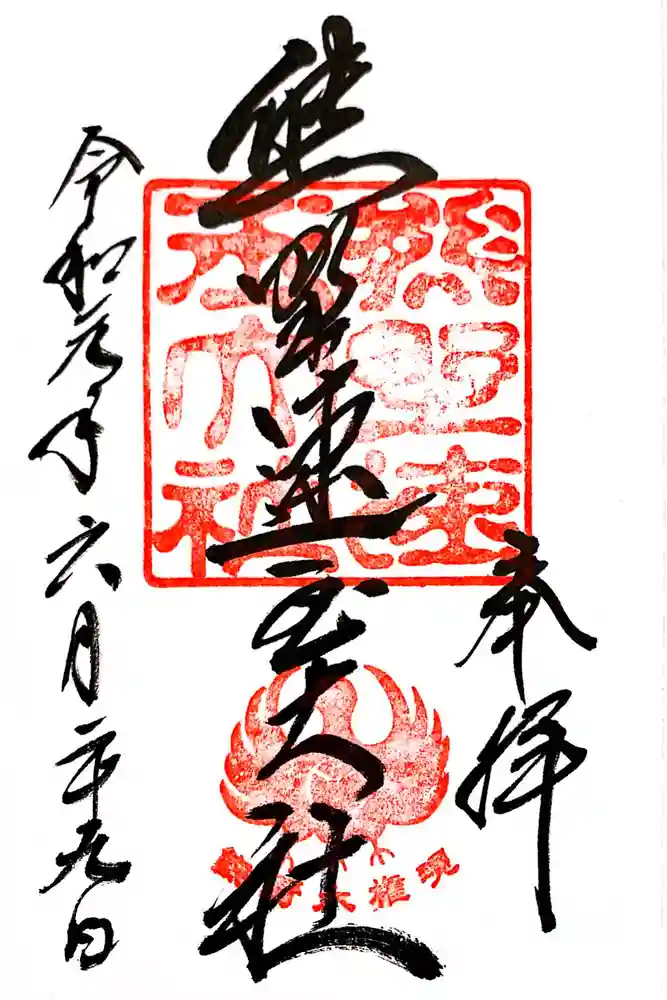 奉拝
熊野速玉大社
令和元年六月二十九日
熊野速
玉大社
熊野大権現